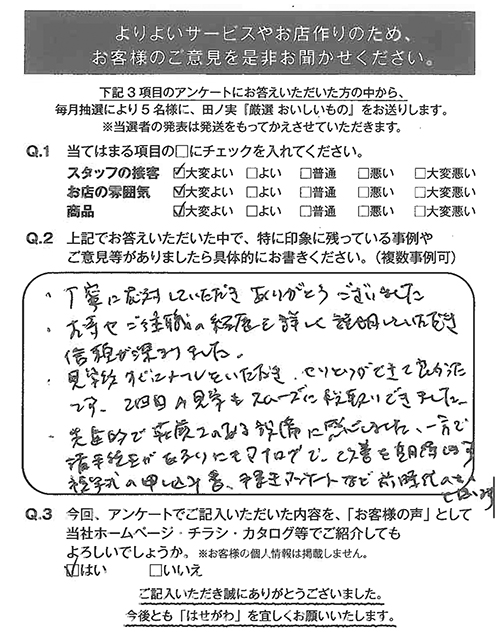 よりよいサービスやお店作りのため、
お客様のご意見を是非お聞かせください。
下記3項目のアンケートにお答えいただいた方の中から、
毎月抽選により5名様に、田ノ実『厳選 おいしいもの』をお送りします。
※当選者の発表は発送をもってかえさせていただきます。
Q.1 当てはまる項目の□にチェックを入れてください。
スタッフの接客 ☑大変よい □よい □普通 □悪い □大変悪い
お店の雰囲気 ☑大変よい □よい □普通 □悪い □大変悪い
商品 ☑大変よい □よい □普通 □悪い □大変悪い
Q.2 上記でお答えいただいた中で、特に印象に残っている事例や
ご意見等がありましたら具体的にお書きください。(複数事例可)
・丁寧に応対していただきありがとうございました
・ご住職の経歴も詳しく説明していただき
信頼が深まりました。
・見学後 いただき、やりとりができて良かった
です。2回目の見学もスムーズに段取りできました。
・先立的で のある設備に感じました、一方で
アナログで、改善を期待します
の申し込み書、手書きアンケートなど前時代のもの
と思います
Q.3 今回、アンケートでご記入いただいた内容を、「お客様の声」として
当社ホームページ・チラシ・カタログ等でご紹介しても
よろしいでしょうか。 ※お客様の個人情報は掲載しません。
☑はい □いいえ
ご記入いただき誠にありがとうございました。
今後とも「はせがわ」を宜しくお願いいたします。